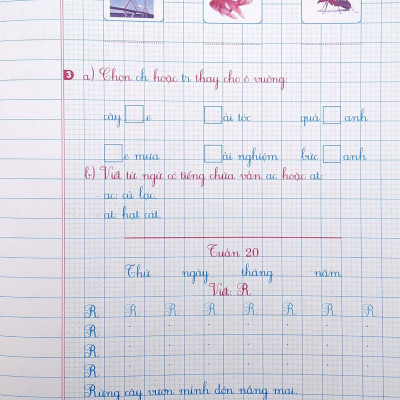 3 a) Chọn ch hoặc tr thay cho ô vuông:
cây □e □ải tóc quả □anh
□e mưa □ải nghiệm bức □anh
b) Viết từ ngữ có tiếng chứa vần ac hoặc at:
ac: củ lạc
at: hạt cát
Tuần 20
Thứ ngày tháng năm
Viết: R
R R R R R R R R
R
R
R
Rừng cây vươn mình đón nắng mai.